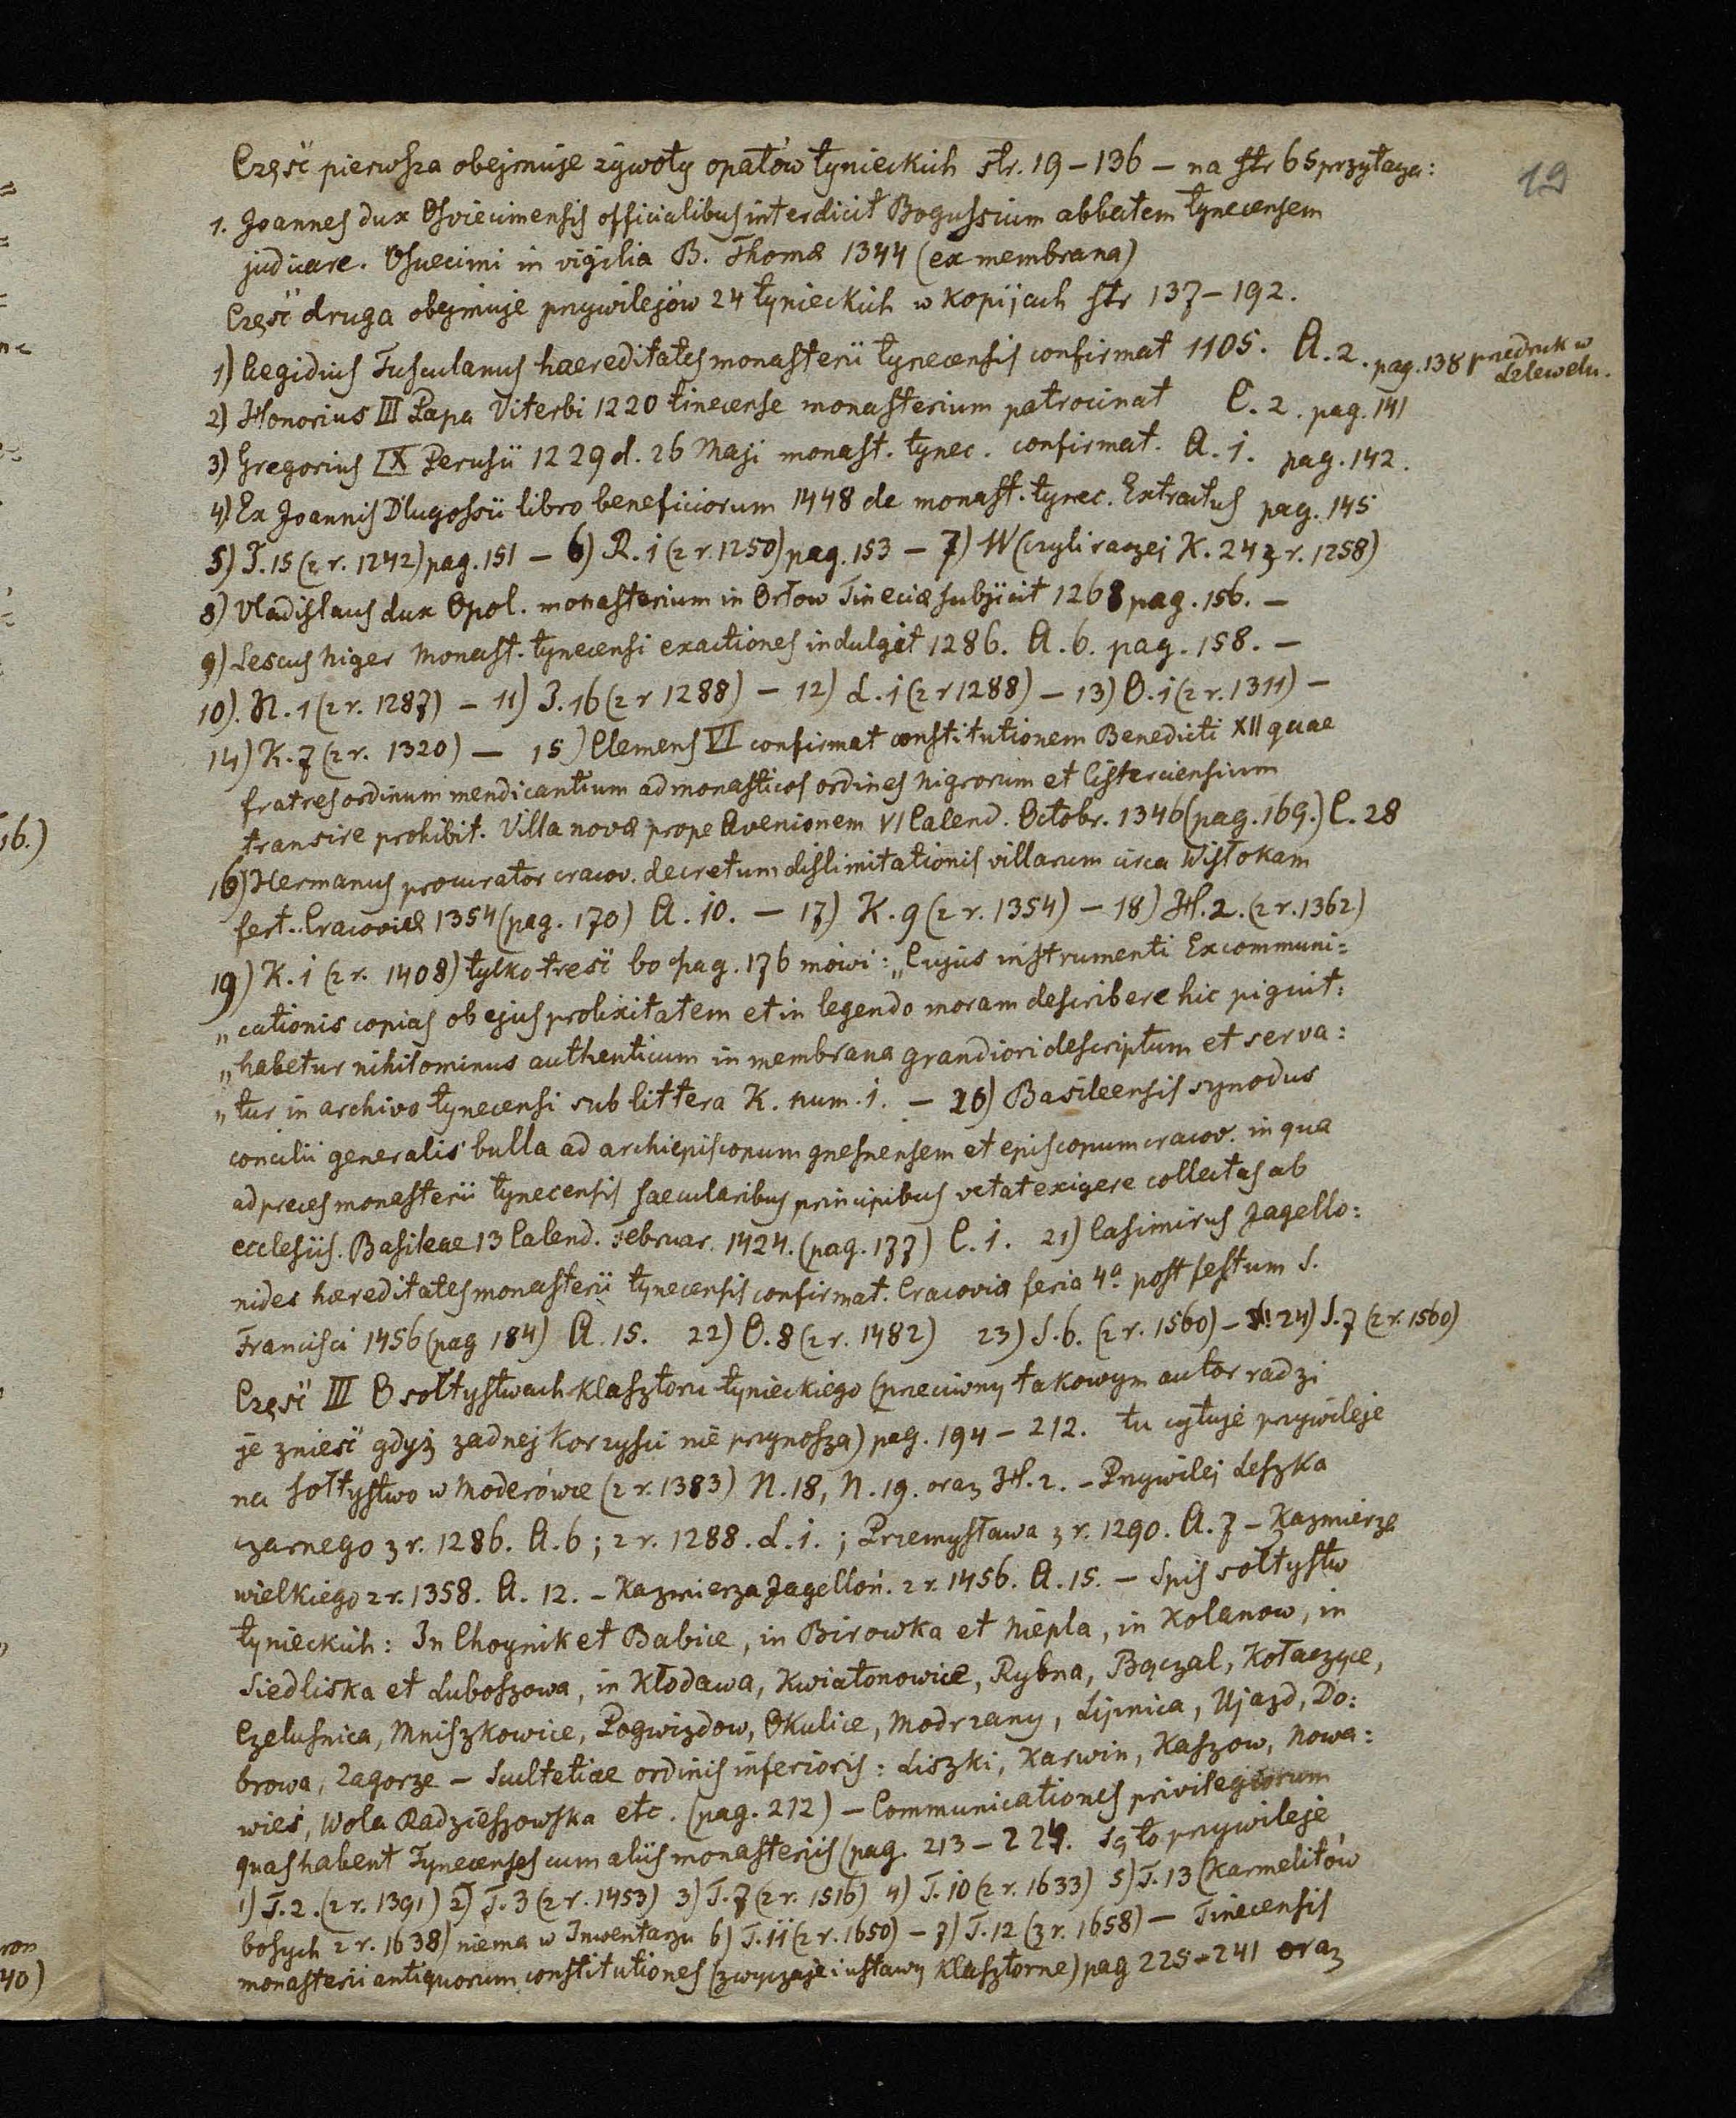 19
Część pierwsza obejmuje żywoty opatów tynieckich str. 19 – 136 – na str 65 przytacza:
1. Joannes dux Osviecimensis officialibus interdicit Bogussium abbatem tynecensem
judicare. Osuecimi in vigilia B. Thomæ 1344 (ex membrana)
Część druga obejmuje przywilejów 24 tynieckich w kopijach str 137 – 192.
1) Aegidius Tusculanus haereditates monasterii tynecensis confirmat 1105. A. 2. pag. 138 przedruk w
Lelewelu.
2) Honorius III Papa Viterbi 1220 tinecense monasterium patrocinat C. 2. pag. 141
3) Gregorius IX Perusii 1229 d. 26 Maji monast. tynec. confirmat. A. 1. pag. 142.
4) Ex Joannis Długossii libro beneficiorum 1448 de monast. tynec. Extractus pag. 145
5) J. 15 (z r. 1242) pag. 151 – 6) R. 1 (z r. 1250) pag. 153 – 7) W (czyli raczej K. 24 z r. 1258)
8) Vladislaus dux Opol. monasterium in Orłow Tineciæ subjicit 1268 pag. 156. –
9) Lescus niger Monast. tynecensi exactiones indulget 1286. A. 6. pag. 158. –
10). N. 1 (z r. 1287) – 11) J. 16 (z r 1288) – 12) L. 1 (z r 1288) – 13) O. 1 (z r. 1311) –
14) K. 7 (z r. 1320) – 15) Clemens VI confirmat constitutionem Benedicti XII quae
fratres ordinum mendicantium ad monasticos ordines nigrorum et Cisterciensium
transire prohibit. Villa novæ prope Avenionem VI Calend. Octobr. 1346 (pag. 169.) C. 28
16) Hermanus procurator cracov. decretum dislimitationis villarum circa Wisłokam
fert. Cracoviæ 1354 (pag. 170) A. 10. – 17) K. 9 (z r. 1354) – 18) H. 2. (z r. 1362)
19) K. 1 (z r. 1408) tylko treść bo pag. 176 mówi: „Cujus instrumenti Excommuni=
„cationis copias ob ejus prolixitatem et in legendo moram describere hic piguit:
„habetur nihilominus authenticum in membrana grandiori descriptum et serva:
„tur in archivo tynecensi sub littera K. num. 1. – 20) Basileensis synodus
concilii generalis bulla ad archiepiscopum gnesnensem et episcopum cracov. in qua
ad preces monasterii tynecensis saecularibus principibus vetat exigere collectas ab
ecclesiis. Basileae 13 Calend. Februar. 1424. (pag. 177) C. 1. 21) Casimirus Jagello:
nides hæreditates monasterii tynecensis confirmat. Cracovia feria 4ª post festum S.
Francisci 1456 (pag 184) A. 15. 22) O. 8 (z r. 1482) 23) S. 6. (z r. 1560) – 24) S. 7 (z r. 1560)
Część III O sołtystwach klasztoru tynieckiego (przeciwny takowym autor radzi
je znieść gdyż żadnej korzyści nie przynoszą) pag. 194 – 212. tu cytuje przywileje
na sołtystwo w Moderówce (z r. 1383) N. 18, N. 19. oraz H. 2. – Przywilej Leszka
czarnego z r. 1286. A. 6; z r. 1288. L. 1.; Przemysława z r. 1290. A. 7 – Kazmierza
wielkiego z r. 1358. A. 12. – Kazmierza Jagelloń. z r. 1456. A. 15. – Spis sołtystw
tynieckich: In Choynik et Babice, in Birowka et Niepla, in Kolanow, in
Siedliska et Luboszowa, in Kłodawa, Kwiatonowice, Rybna, Bączal, Kołaczyce,
Czelusnica, Mniszkowice, Pogwizdow, Okulice, Modrzany, Lipnica, Ujazd, Do:
browa, Zagorze – Scultetiae ordinis inferioris: Liszki, Karwin, Kaszow, Nowa:
wieś, Wola Radzieszowska etc. (pag. 212) – Communicationes privilegiorum
quas habent Tynecenses cum aliis monasteriis (pag. 213 – 224. Są to przywileje
1) T. 2. (z r. 1391) 2) T. 3 (z r. 1453) 3) T. 7 (z r. 1516) 4) T. 10 (z r. 1633) 5) T. 13 (Karmelitów
bosych z r. 1638) niema w Inwentarzu 6) T. 11 (z r. 1650) – 7) T. 12 (z r. 1658) – Tinecensis
monasterii antiquorum constitutiones (zwyczaje i ustawy klasztorne) pag 225 – 241 oraz
16.)
40)